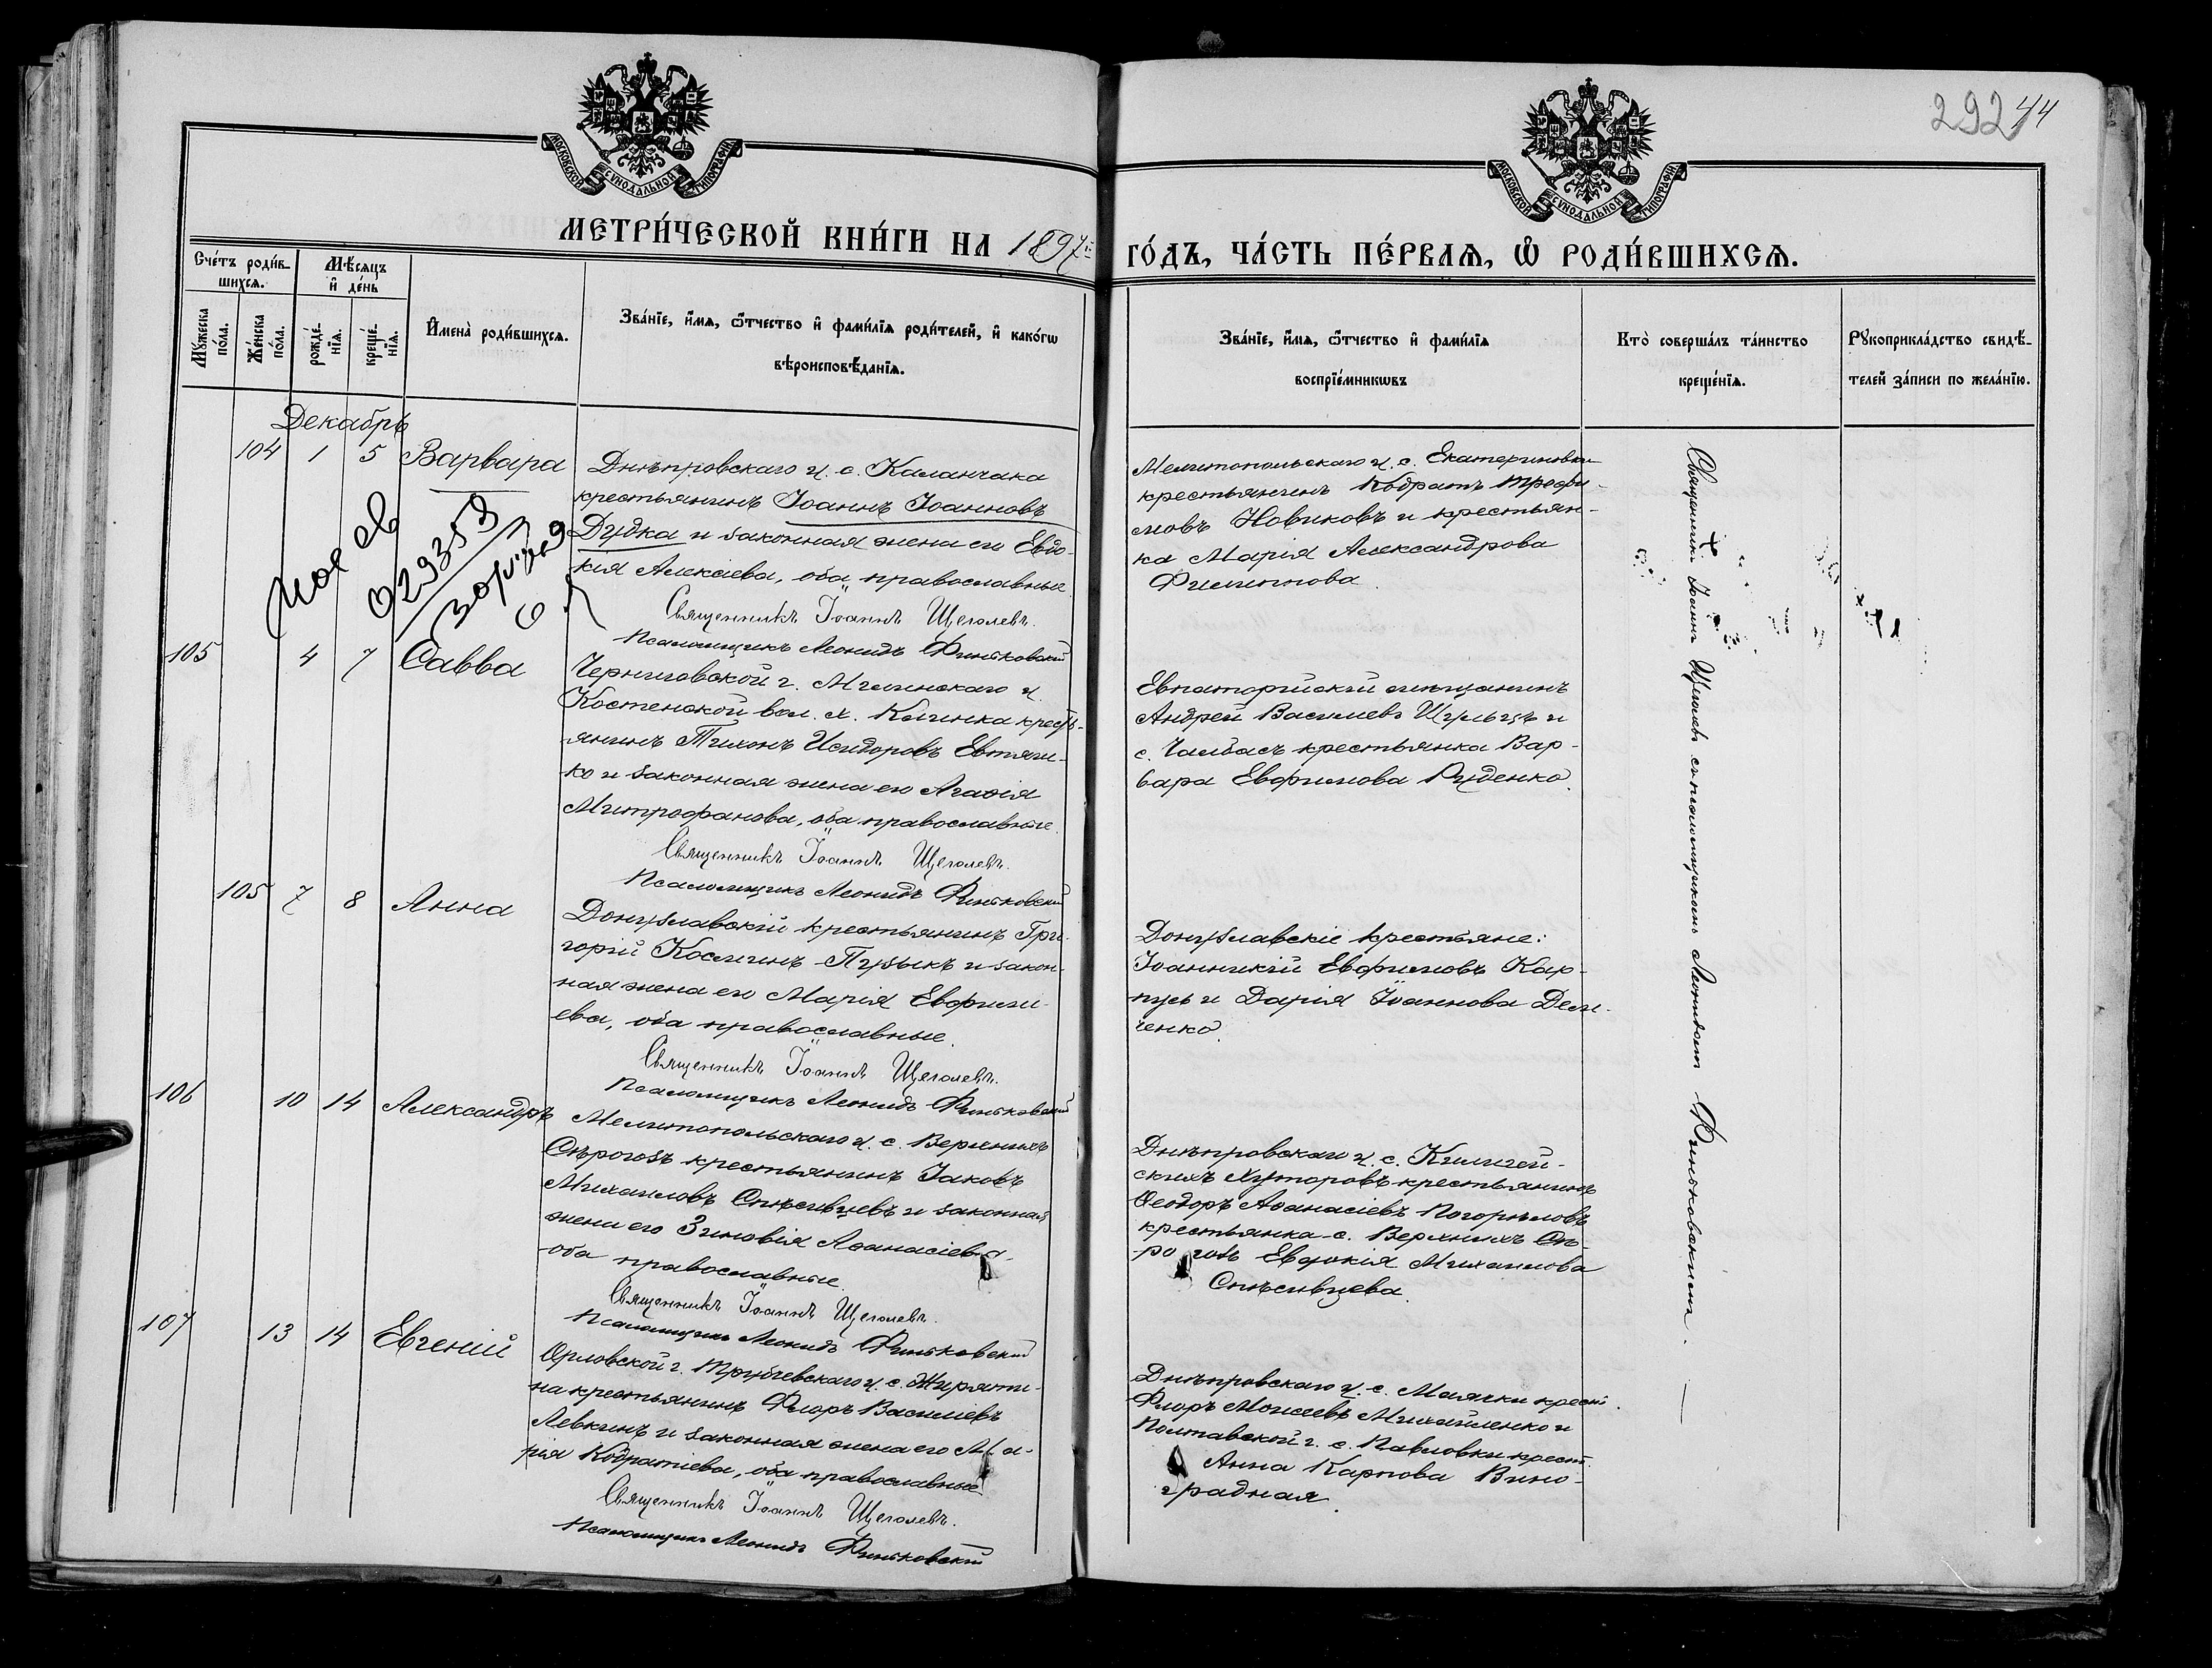 292 44
МОСКОВСКОЙ СѴНОДАЛЬНОЙ ТИПОГРАФІИ
МОСКОВСКОЙ СѴНОДАЛЬНОЙ ТИПОГРАФІИ
МЕТРИ́ЧЕСКОЙ КНИ́ГИ НА 1897й
ГО́ДЪ, ЧА́СТЬ ПЕ́РВАѦ, Ѡ҆ РОДИ́ВШИХСѦ.
Сче́тъ роди́в-
шихсѧ.
Мꙋ́жеска по́ла.
Же́нска по́ла.
Мѣ́сѧцъ
и҆ де́нь
рожде́-
нїѧ.
креще́-
нїѧ.
И҆мена̀ роди́вшихсѧ.
Зва́нїе, и҆́мѧ, ѻ҆́тчество и҆ фами́лїѧ роди́телей, и҆ како́гѡ
вѣроисповѣ́данїѧ.
Зва́нїе, и҆́мѧ, ѻ҆́тчество и҆ фами́лїѧ
воспрїе́мникѡвъ
Кто̀ соверша́лъ та́инство
креще́нїѧ.
Рꙋкоприкла́дство свидѣ́-
телей за́писи по жела́нїю.
Декабрь
104 1 5 Варвара
Днѣпровскаго у. с. Каланчака
крестьянинъ Іоаннъ Іоанновъ
Дудка и законная жена его Евдо-
кія Алексіева, оба православные.
Священникъ Іоаннъ Щеголевъ.
Псаломщикъ Леонидъ Финьковскій
029353
Мелитопольскаго у. с. Екатериновки
крестьянинъ Кодратъ Трофи-
мовъ Новиковъ и крестьян-
ка Марія Александрова
Филиппова.
105 4 7 Савва
Черниговской г. Мглинскаго у.
Костенской вол. х. Калинка кресть-
янинъ Тихонъ Исидоровъ Евтяги-
ко и законная жена его Агафія
Митрофанова, оба православные.
Священникъ Іоаннъ Щеголевъ.
Псаломщикъ Леонидъ Финьковскій
Евпаторійскій мѣщанинъ
Андрей Васильевъ Шульцъ и
с. Чалбасъ крестьянка Вар-
вара Евфимова Руденко.
105 7 8 Анна
Донузлавскій крестьянинъ Гри-
горій Косминъ Пузыкъ и закон-
ная жена его Марія Евфими-
ева, оба православные.
Священникъ Іоаннъ Щеголевъ.
Псаломщикъ Леонидъ Финьковскій
Донузлавскіе крестьяне:
Іоанникій Евфимовъ Кар-
пусь и Дарія Іоаннова Дем-
ченко.
106 10 14 Александръ
Мелитопольскаго у. с. Верхнихъ
Сѣрогозъ крестьянинъ Іаковъ
Михаиловъ Спѣсивцевъ и законная
жена его Зиновія Аѳанасіева-
оба православные.
Священникъ Іоаннъ Щеголевъ.
Псаломщикъ Леонидъ Финьковскій
Днѣпровскаго у. с. Килигей-
скихъ Хуторовъ крестьянинъ
Ѳеодоръ Аѳанасіевъ Погорѣловъ
крестьянка с. Верхнихъ Сѣ-
рогозъ Евдокія Михаилова
Спѣсивцева.
107 13 14 Евгеній
Орловской г. Трубчевскаго у. с. Жиряти-
на крестьянинъ Флоръ Василіевъ
Левкинъ и законная жена его Ма-
рія Кодратіева, оба православные
Священникъ Іоаннъ Щеголевъ.
Псаломщикъ Леонидъ Финьковскій
Днѣпровскаго у. с. Маячки крест.
Флоръ Моисеевъ Михайленко и
Полтавской г. с. Павловки крест.
Анна Карпова Вино-
градная.
Священникъ Іоаннъ Щеголевъ съ псаломщикомъ Леонидомъ Финьковскимъ. —